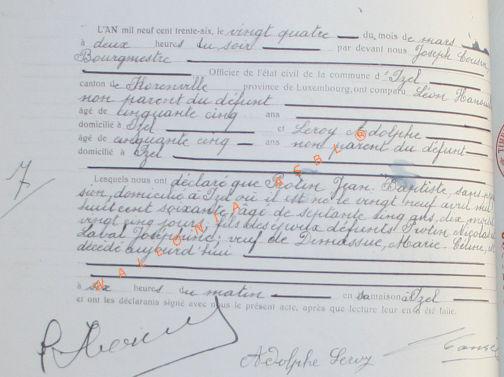 L'AN mil neuf cent trente-six, le vingt quatre du mois de mars
à deux heures du soir par devant nous Joseph
Bourgmestre
Officier de l'état civil de la commune d'Izel
canton de Florenville province de Luxembourg, ont comparu Léon
non parent du défunt
âgé de cinquante cinq ans
domicilié à Izel et Leroy Adolphe
âgé de cinquante cinq ans non parent du défunt
domicilié à Izel
7
Lesquels nous ont déclaré que Jean Baptiste sans
sion, domicilié à Izel où il est né le vingt neuf avril mil
huit cent soixante, âgé de septante cinq ans, dix mois
vingt cinq jours, fils des époux défunts Nicolas
Laval Joséphine; veuf de Marie
décédé aujourd'hui
à six heures du matin en sa maison à Izel
et ont les déclarants signé avec nous le présent acte, après que lecture leur en a été faite.
Adolphe Leroy